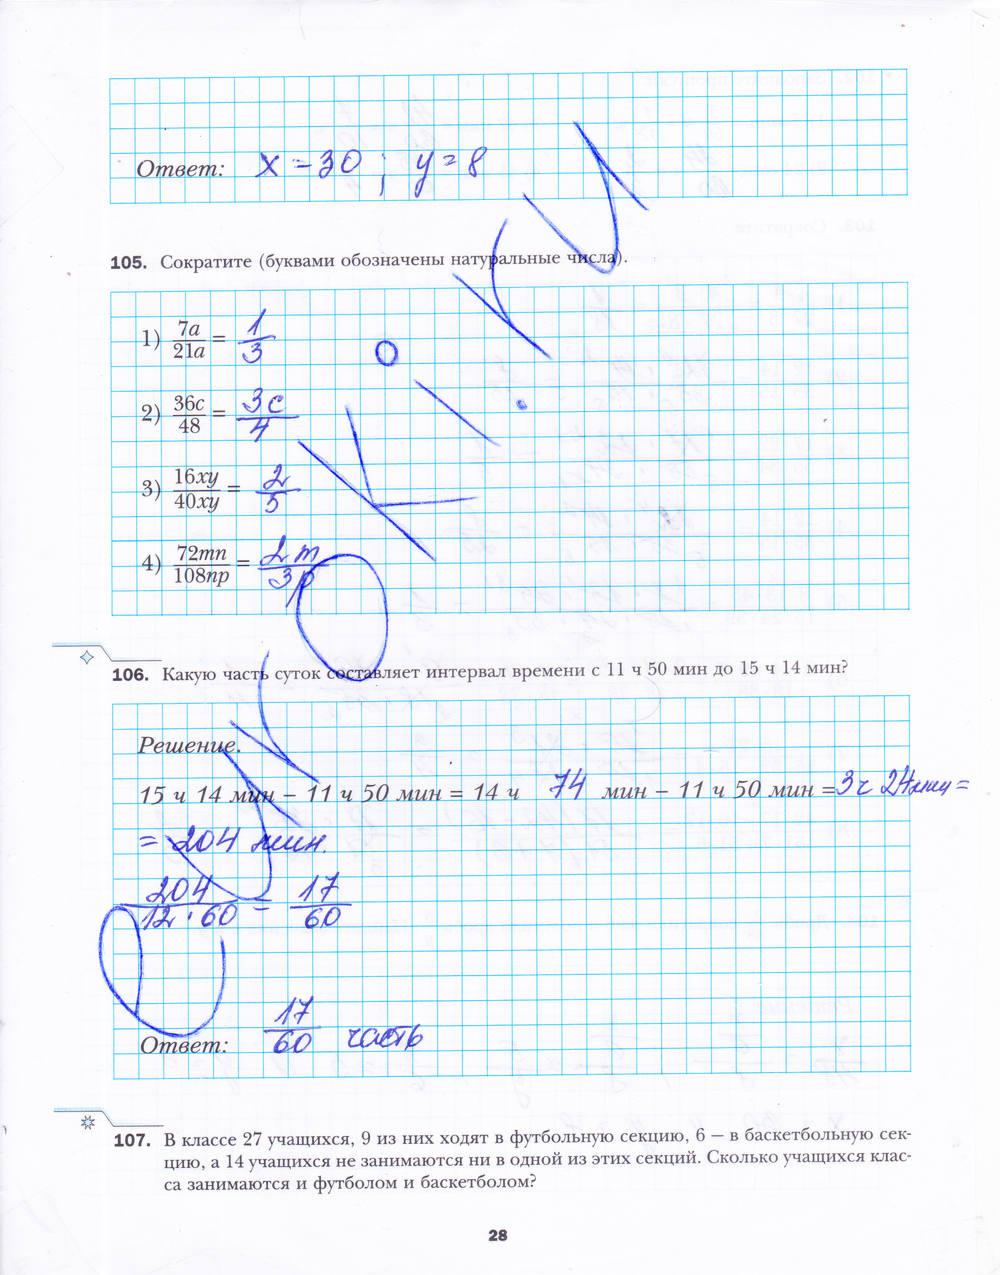 Ответ: x = 30 ; y = 8
105. Сократите (буквами обозначены натуральные числа).
1) 7a/21a = 1/3
2) 36c/48 = 3c/4
3) 16xy/40xy = 2/5
4) 72mn/108np = 2m/3p
106. Какую часть суток составляет интервал времени с 11 ч 50 мин до 15 ч 14 мин?
Решение.
15 ч 14 мин − 11 ч 50 мин = 14 ч 74 мин − 11 ч 50 мин = 3 ч 24 мин =
= 204 мин.
204/12·60 = 17/60
Ответ: 17/60 часть
107. В классе 27 учащихся, 9 из них ходят в футбольную секцию, 6 — в баскетбольную сек-
цию, а 14 учащихся не занимаются ни в одной из этих секций. Сколько учащихся клас-
са занимаются и футболом и баскетболом?
28